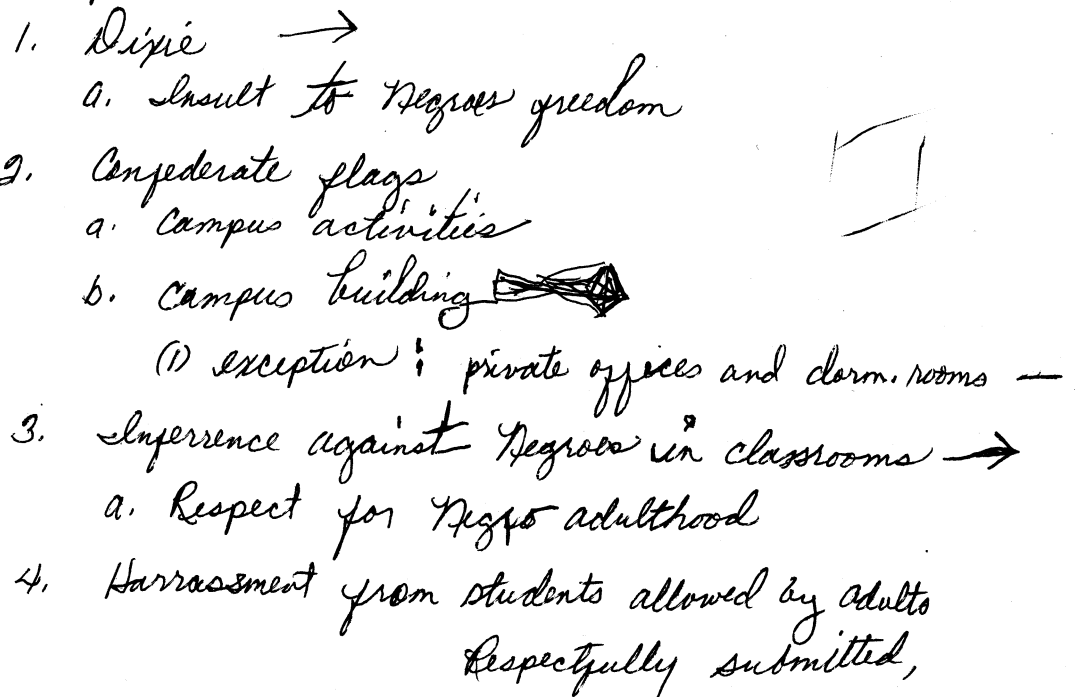 1. Dixie →
a. Insult to Negroes freedom
2. Confederate flags
a. Campus activities
b. Campus building
(1) exception : private offices and dorm. rooms —
3. Inferrence against Negroes in classrooms →
a. Respect for Negro adulthood
4. Harrassment from students allowed by adults
Respectfully submitted,